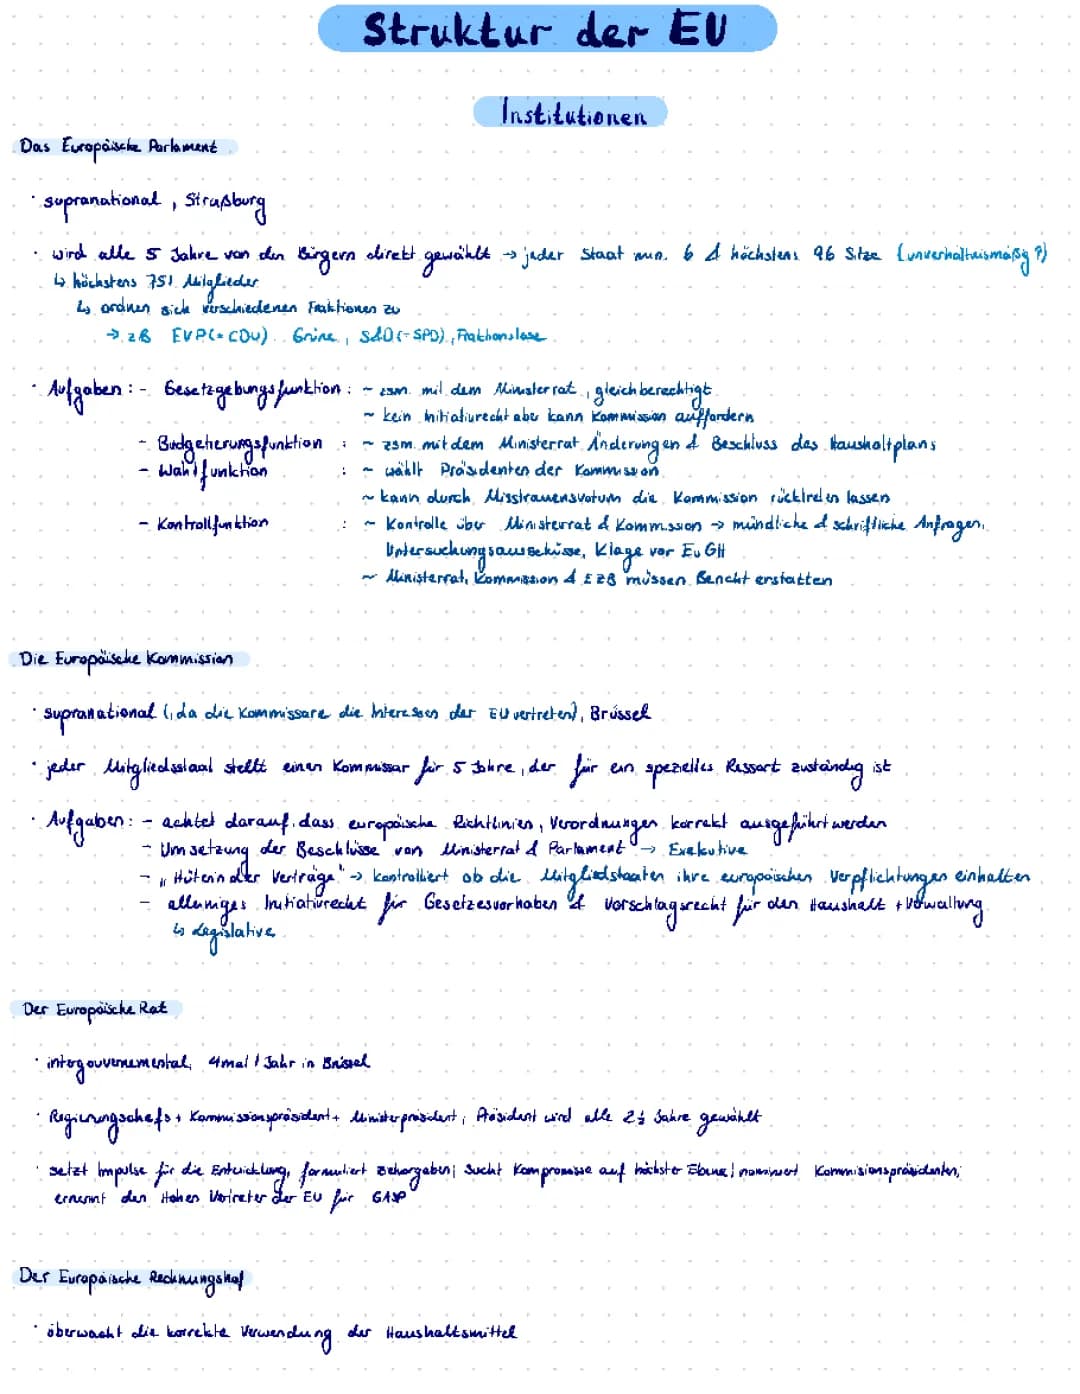 Struktur der EU
Institutionen
Das Europäische Parlament
· supranational, Straßburg
· wird alle 5 Jahre von den Bürgern direkt gewählt → jeder Staat min. 6 & höchstens 96 Sitze (unverhältnismäßig?)
↳ höchstens 751 Mitglieder
↳ ordnen sich verschiedenen Fraktionen zu
→ zB EVP(=CDU), Grüne, S&D(=SPD), Fraktionslose
· Aufgaben: - Gesetzgebungsfunktion: ~ zsm. mit dem Ministerrat, gleichberechtigt
~ kein Initiativrecht aber kann Kommission auffordern
- Budgetierungsfunktion : ~ zsm. mit dem Ministerrat Änderungen & Beschluss des Haushaltplans
- Wahlfunktion : ~ wählt Präsidenten der Kommission
~ kann durch Misstrauensvotum die Kommission rücktreten lassen
- Kontrollfunktion : ~ Kontrolle über Ministerrat & Kommission → mündliche & schriftliche Anfragen,
Untersuchungsausschüsse, Klage vor EuGH
~ Ministerrat, Kommission & EZB müssen Bericht erstatten
Die Europäische Kommission
· supranational (, da die Kommissare die Interessen der EU vertreten), Brüssel
· jeder Mitgliedsstaat stellt einen Kommissar für 5 Jahre, der für ein spezielles Ressort zuständig ist
· Aufgaben: - achtet darauf, dass europäische Richtlinien, Verordnungen korrekt ausgeführt werden
- Umsetzung der Beschlüsse von Ministerrat & Parlament → Exekutive
- „Hüterin der Verträge" → kontrolliert ob die Mitgliedstaaten ihre europäischen Verpflichtungen einhalten
- alleiniges Initiativrecht für Gesetzesvorhaben & Vorschlagsrecht für den Haushalt + Verwaltung
↳ Legislative
Der Europäische Rat
· intergouvernemental, 4mal / Jahr in Brüssel
· Regierungschefs + Kommissionspräsident + Ministerpräsident, Präsident wird alle 2½ Jahre gewählt
· setzt Impulse für die Entwicklung, formuliert Zielvorgaben, sucht Kompromisse auf höchster Ebene, nominiert Kommisionspräsidenten,
ernennt den Hohen Vertreter der EU für GASP
Der Europäische Rechnungshof
· überwacht die korrekte Verwendung der Haushaltsmittel